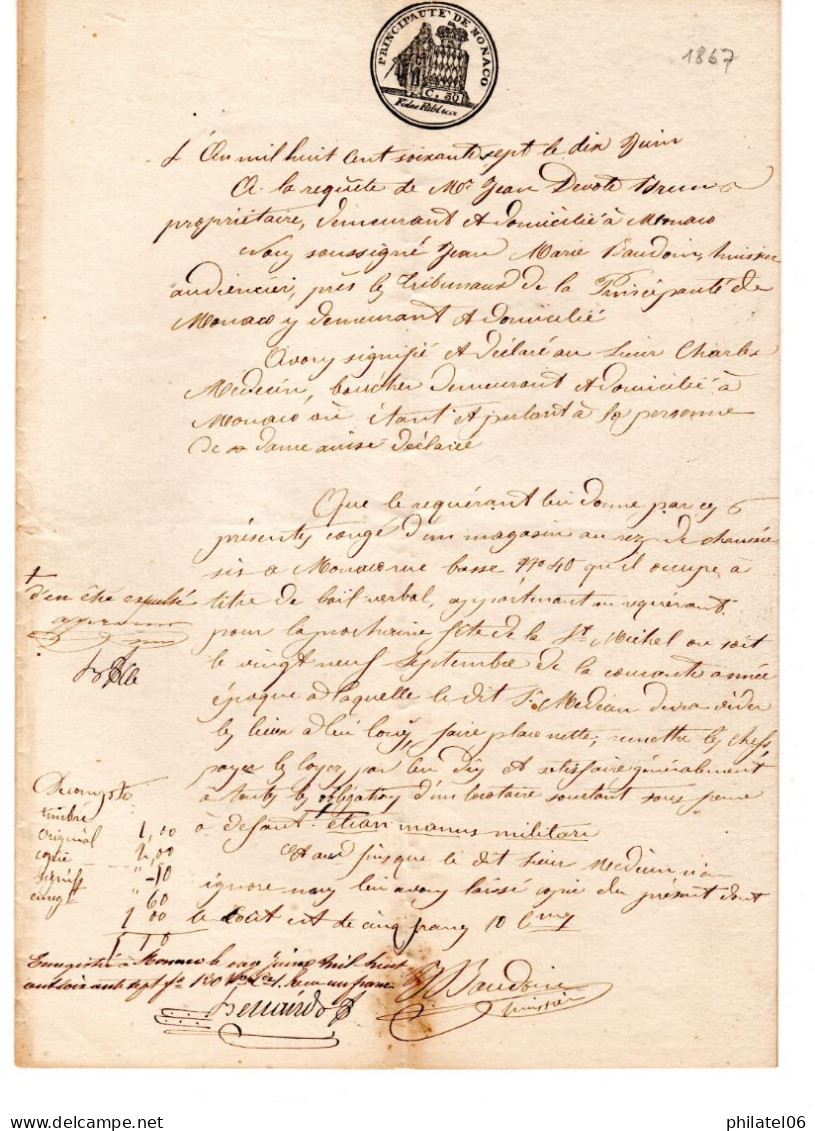 PRINCIPAUTÉ DE MONACO
C. 50
1867
L'An mil huit cent soixante sept le dix Juin
A la requête de Mr. Jean Devote Brun
propriétaire, demeurant et domicilié à Monaco
Nous soussigné Jean Marie Baudoin, huissier
audiencier, près les Tribunaux de la Principauté de
Monaco y demeurant et domicilié
Avons signifié et déclaré au sieur Charles
Medecin, boucher demeurant et domicilié à
Monaco où étant et parlant à la personne
de sa dame ainsi déclarée
Que le requérant lui donne par ces
présentes congé d'un magasin au rez de chaussée
sis à Monaco rue basse No 40 qu'il occupe à
titre de bail verbal, appartenant au requérant
pour la prochaine fête de la St. Michel ou soit
le vingt neuf Septembre de la courante année
époque à laquelle le dit Sr. Medecin devra vider
les lieux à lui loués, faire place nette, remettre les clefs
payer les loyers par lui dûs et satisfaire généralement
à toutes les obligations d'un locataire sortant sous peine
à défaut
d'en être expulsé
etiam manus militari
Et afin que le dit sieur Medecin n'en
ignore nous lui avons laissé copie du présent dont
le coût est de cinq francs 10 cmes
Decompte
timbre 1,00
Original 2,00
copie " -10
" 60
1 00
5 10
Enregistré à Monaco le onze Juin mil huit
cent soixante sept fo 130 reçu un franc
Baudoin
huissier
philatel06
www.delcampe.net